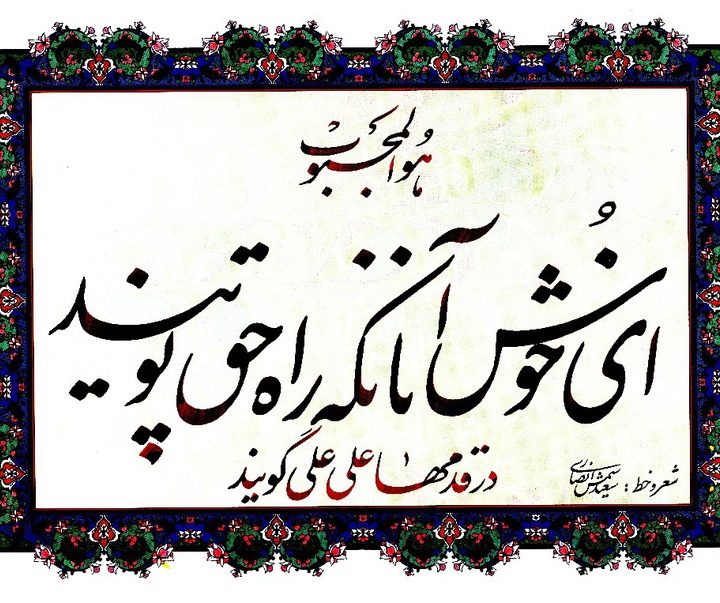 هوالمحبوب
ای خوش آنانکه راه حق پویند
در قدمها علی علی گویند
شعر و خط : سعید شمس انصاری